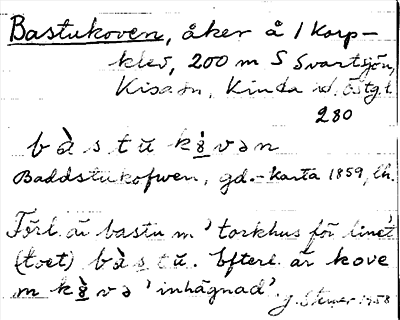 Bastukoven, åker å 1 Korp-
klev, 200 m S Svartsjön,
Kisa sn, Kinda hd, Östg.l.
280
b à s t ŭ k ə̀ v ə n
Baddstukofwen, gd.-karta 1859, lh.
Förl. är bastu m 'torkhus för linet'
(tvet) b à s t ŭ. Efterl. är kove
m k ə̀ v ə 'inhägnad'.
J. Stener 1958